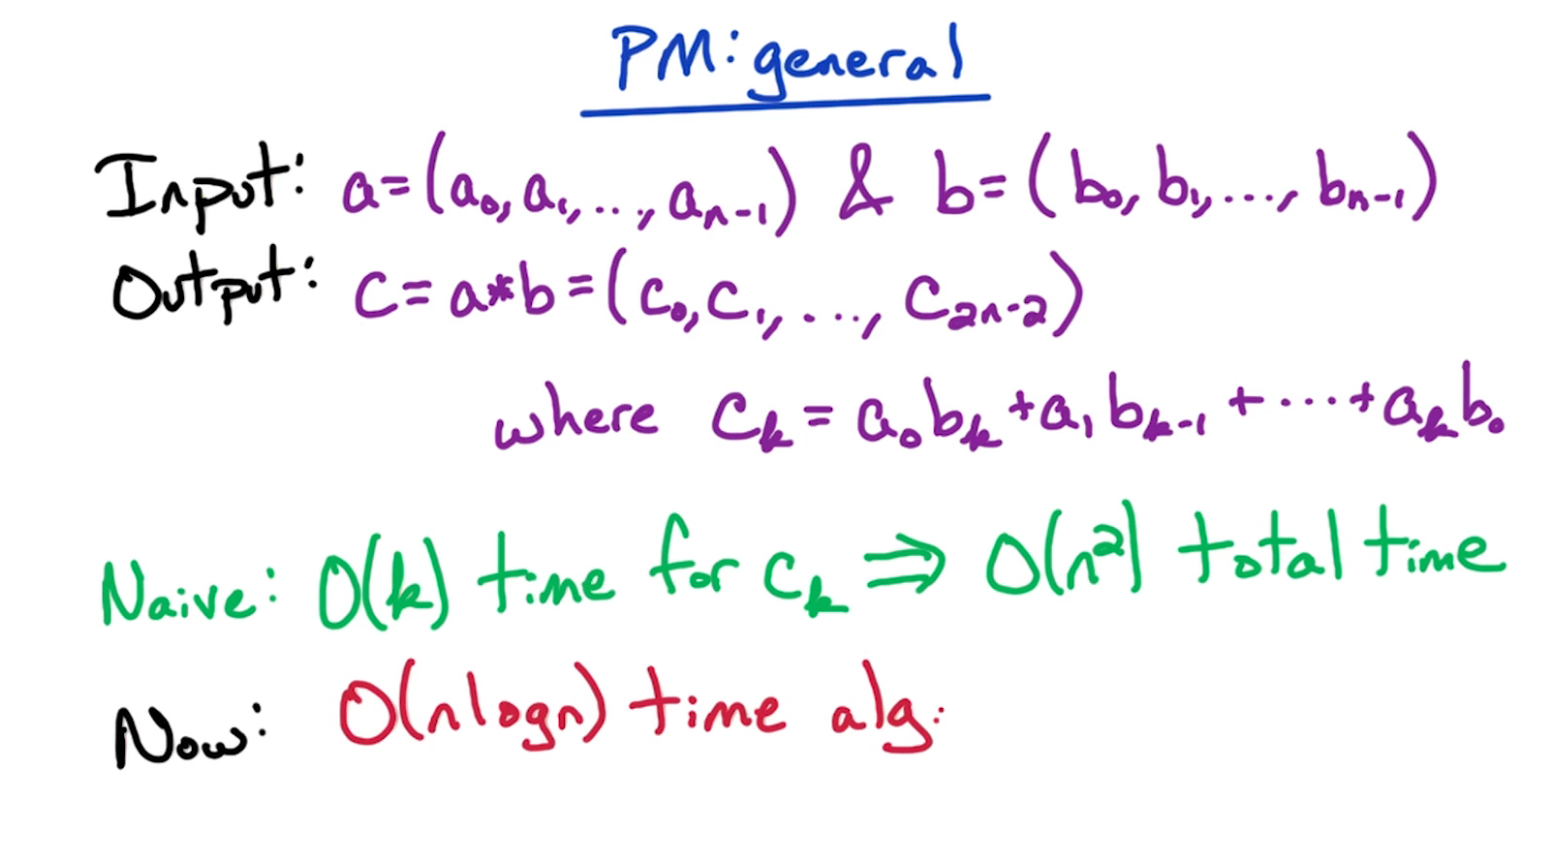 PM: general
Input: a=(a₀, a₁, ..., aₙ₋₁) & b=(b₀, b₁, ..., bₙ₋₁)
Output: c=a*b=(c₀, c₁, ..., c₂ₙ₋₂)
where cₖ = a₀bₖ + a₁bₖ₋₁ + ... + aₖb₀
Naive: O(k) time for cₖ ⇒ O(n²) total time
Now: O(nlogn) time alg.